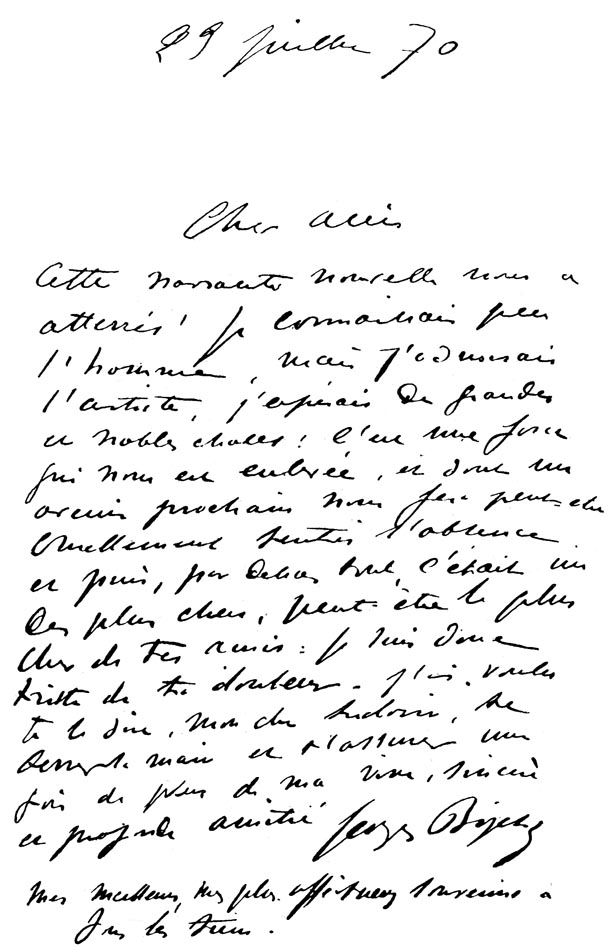 29 juillet 70
Cher ami
Cette navrante nouvelle nous a
atterrés! je connaissais peu
l'homme, mais j'admirais
l'artiste, j'espérais de grandes
et nobles choses! C'est une force
qui nous est enlevée, et dont un
avenir prochain nous fera peut-être
cruellement sentir l'absence
et puis, par dessus tout, c'était un
des plus chers, peut-être le plus
cher de tes amis: je suis donc
triste de ta douleur. j'ai voulu
te le dire, mon cher Ludovic, te
serrer la main et t'assurer une
fois de plus de ma vive, sincère
et profonde amitié Georges Bizet
Mes meilleurs, mes plus affectueux souvenirs à
tous les tiens.